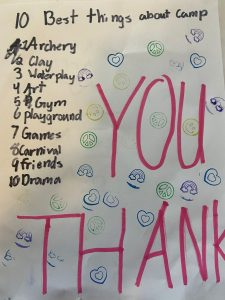 10 Best things about camp
1 Archery
2 Clay
3 Waterplay
4 Art
5 Gym
6 playground
7 Games
8 Carnival
9 friends
10 Drama
YOU
THANK